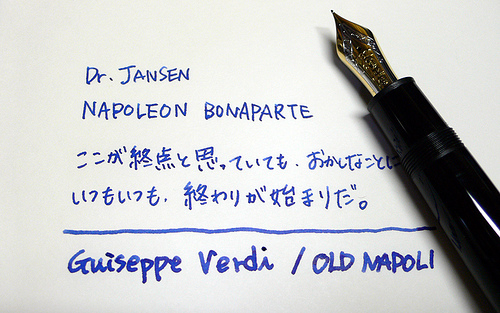 Dr. JANSEN
NAPOLEON BONAPARTE
ここが終点と思っていても、おかしなことに
いつもいつも、終わりが始まりだ。
Guiseppe Verdi / OLD NAPOLI